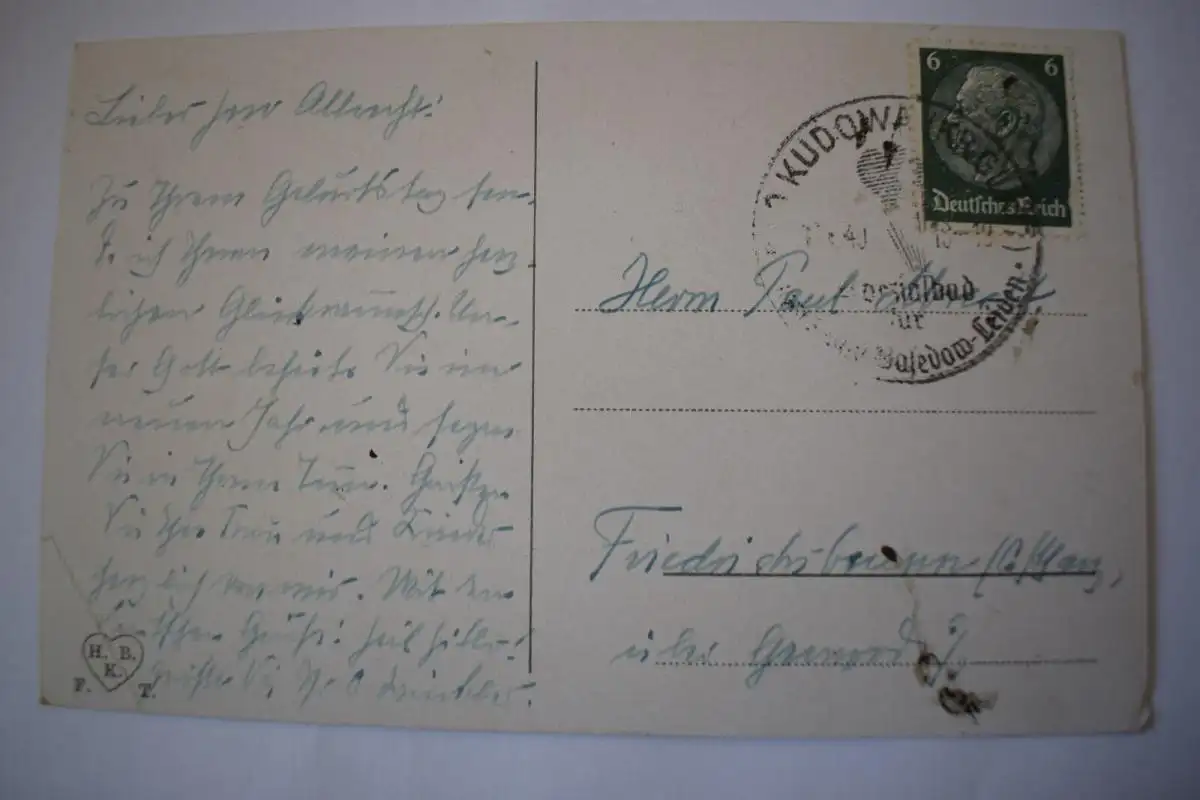 Lieber Herr Albrecht!
Zu Ihrem Geburtstag sen-
de ich Ihnen meinen herz-
lichen Glückwunsch. Un-
ser Gott behüte Sie im
neuen Jahr und segne
Sie in Ihrem Tun. Grüßen
Sie Ihre Frau und Kinder
herzlich von mir. Mit dem
Gruß: Heil Hitler!
H. B.
K.
F. T.
6 6
Deutsches Reich
KUDOWA
40
für
Basedow-Leiden
Herrn Paul
Friedrichsbrunn
über